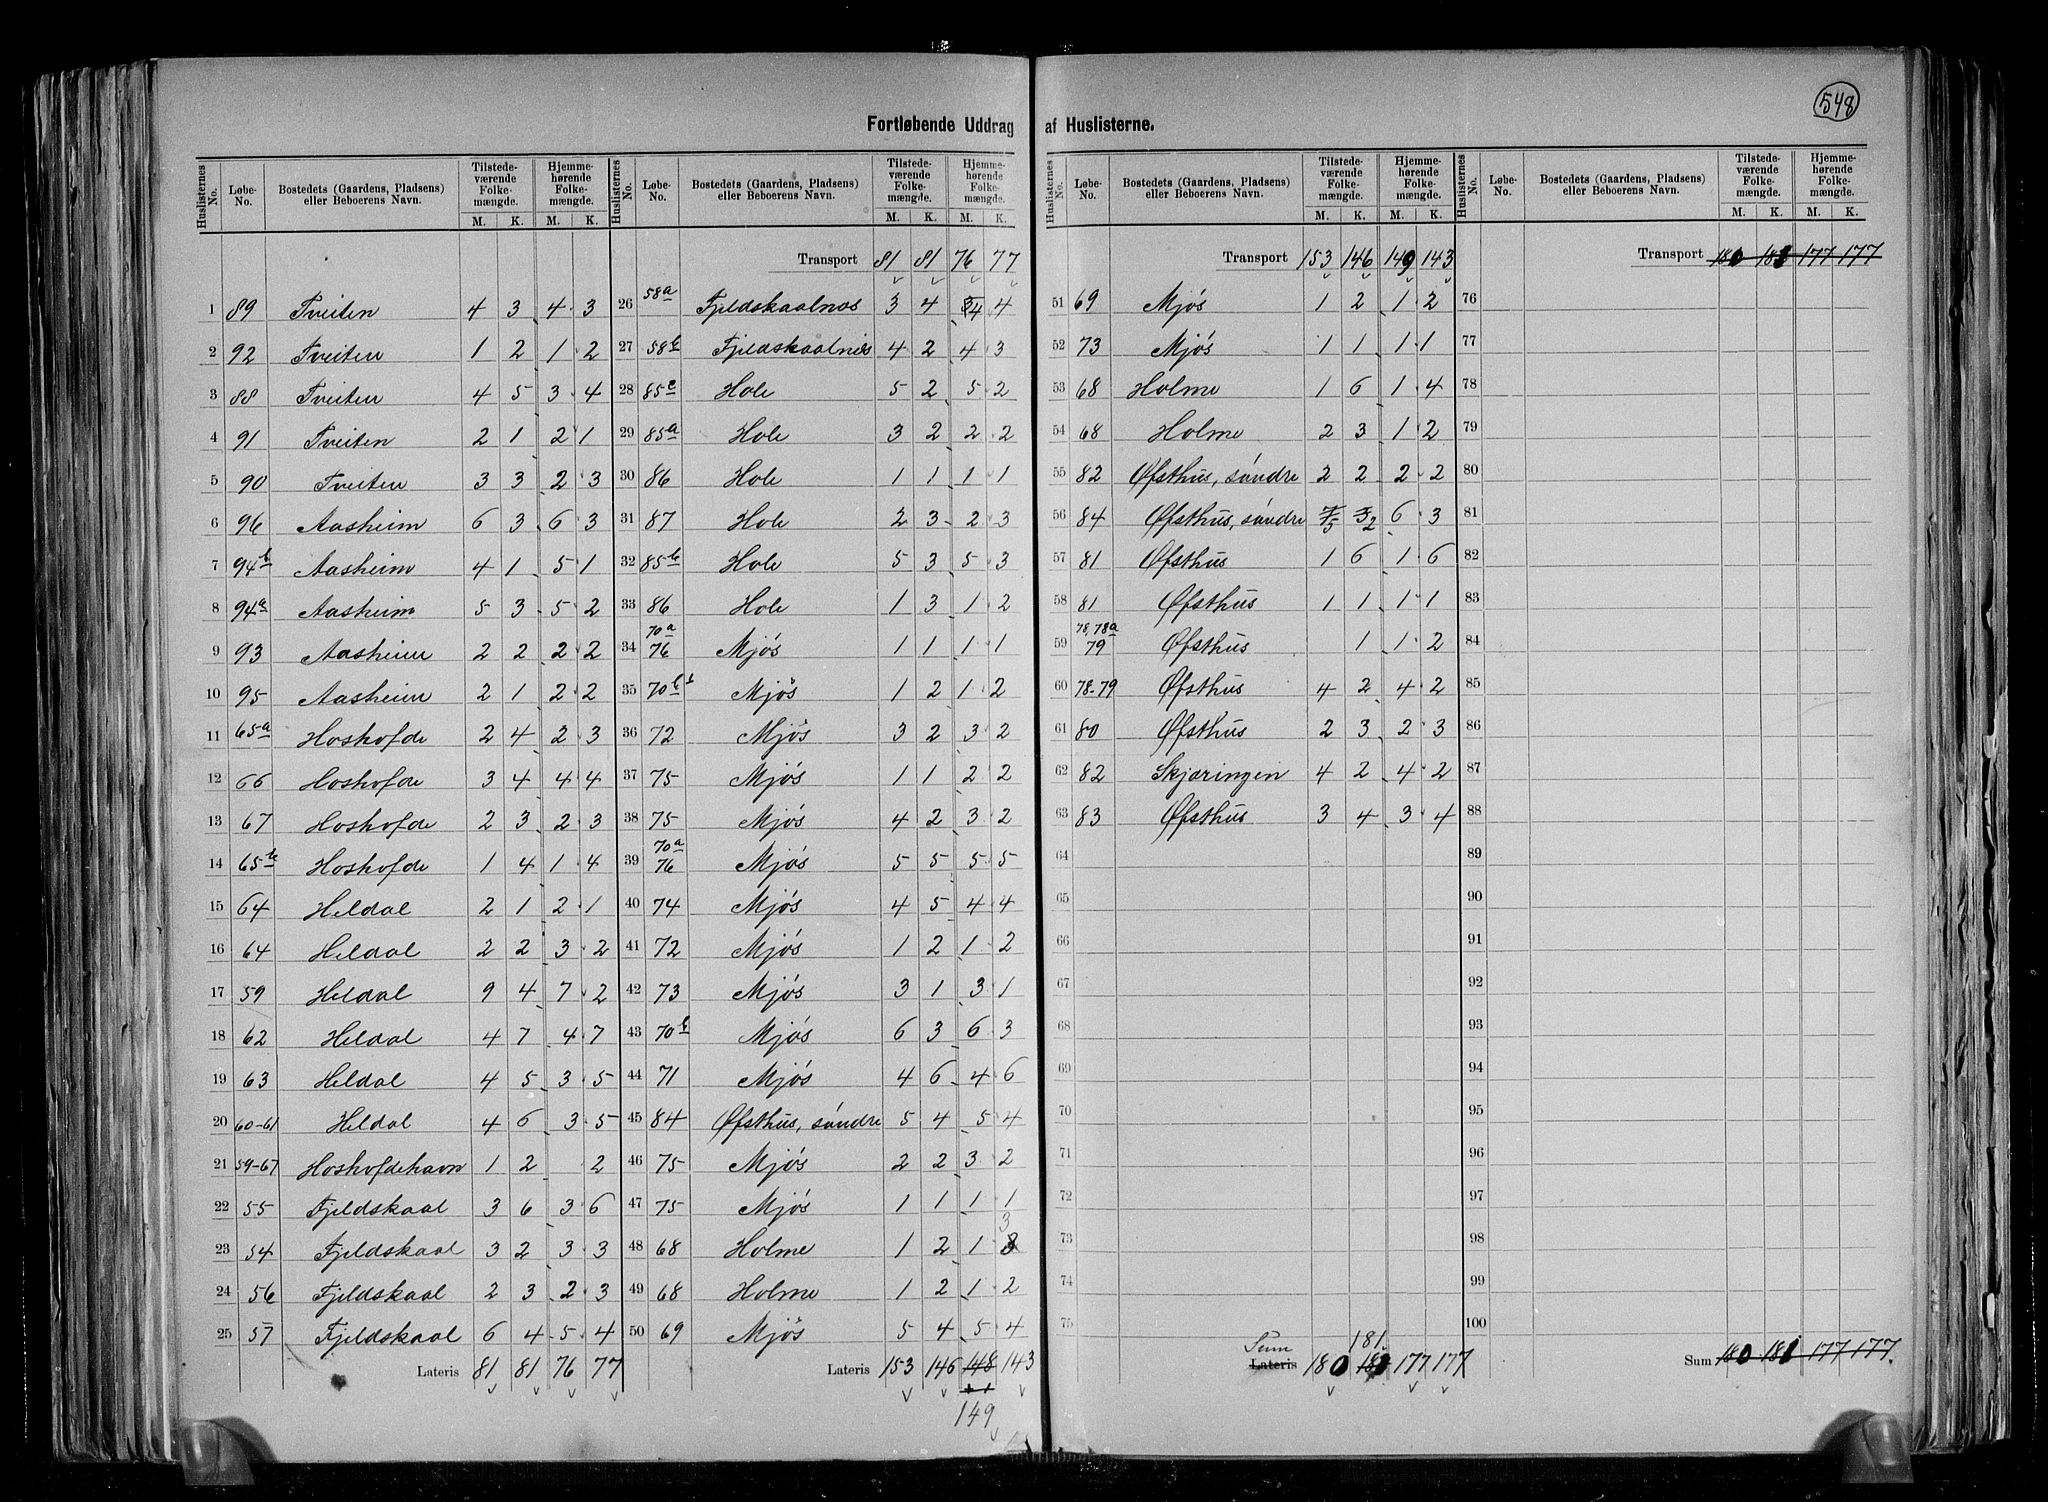 548
Fortløbende Uddrag af Huslisterne.
Huslisternes No. | Løbe-No. | Bostedets (Gaardens, Pladsens) eller Beboerens Navn. | Tilstedeværende Folkemængde. M. K. | Hjemmehørende Folkemængde. M. K.
1 89 Tveiten 4 3 4 3
2 92 Tveiten 1 2 1 2
3 88 Tveiten 4 5 3 4
4 91 Tveiten 2 1 2 1
5 90 Tveiten 3 3 2 3
6 96 Aasheim 6 3 6 3
7 94b Aasheim 4 1 5 1
8 94a Aasheim 5 3 5 2
9 93 Aasheim 2 2 2 2
10 95 Aasheim 2 1 2 2
11 65a Hoskofde 2 4 2 3
12 66 Hoskofde 3 4 4 4
13 67 Hoskofde 2 3 2 3
14 65b Hoskofde 1 4 1 4
15 64 Heldal 2 1 2 1
16 64 Heldal 2 2 3 2
17 59 Heldal 9 4 7 2
18 62 Heldal 4 7 4 7
19 63 Heldal 4 5 3 5
20 60-61 Heldal 4 6 3 5
21 59-67 Hoskofdehavn 1 2 2
22 55 Fjeldskaal 3 6 3 6
23 54 Fjeldskaal 3 2 3 3
24 56 Fjeldskaal 2 3 2 3
25 57 Fjeldskaal 6 4 5 4
Lateris 81 81 76 77
Huslisternes No. | Løbe-No. | Bostedets (Gaardens, Pladsens) eller Beboerens Navn. | Tilstedeværende Folkemængde. M. K. | Hjemmehørende Folkemængde. M. K.
Transport 81 81 76 77
26 58a Fjeldskaalnes 3 4 4 4
27 58b Fjeldskaalnes 4 2 4 3
28 85c Hole 5 2 5 2
29 85a Hole 3 2 2 2
30 86 Hole 1 1 1 1
31 87 Hole 2 3 2 3
32 85b Hole 5 3 5 3
33 86 Hole 1 3 1 2
34 70a 76 Mjøs 1 1 1 1
35 70b Mjøs 1 2 1 2
36 72 Mjøs 3 2 3 2
37 75 Mjøs 1 1 2 2
38 75 Mjøs 4 2 3 2
39 70a 76 Mjøs 5 5 5 5
40 74 Mjøs 4 5 4 4
41 72 Mjøs 1 2 1 2
42 73 Mjøs 3 1 3 1
43 70b Mjøs 6 3 6 3
44 71 Mjøs 4 6 4 6
45 84 Øfsthus, søndre 5 4 5 4
46 75 Mjøs 2 2 3 2
47 75 Mjøs 1 1 1 1
48 68 Holme 1 2 1 3
49 68 Holme 1 2 1 2
50 69 Mjøs 5 4 5 4
Lateris 153 146 148 143
+1
149
Huslisternes No. | Løbe-No. | Bostedets (Gaardens, Pladsens) eller Beboerens Navn. | Tilstedeværende Folkemængde. M. K. | Hjemmehørende Folkemængde. M. K.
Transport 153 146 149 143
51 69 Mjøs 1 2 1 2
52 73 Mjøs 1 1 1 1
53 68 Holme 1 6 1 4
54 68 Holme 2 3 1 2
55 82 Øfsthus, søndre 2 2 2 2
56 84 Øfsthus, søndre 7 5 3 2 6 3
57 81 Øfsthus 1 6 1 6
58 81 Øfsthus 1 1 1 1
59 78, 78a 79 Øfsthus 1 1 2
60 78-79 Øfsthus 4 2 4 2
61 80 Øfsthus 2 3 2 3
62 82 Skjæringen 4 2 4 2
63 83 Øfsthus 3 4 3 4
64
65
66
67
68
69
70
71
72
73
74
75
181
Sum
Lateris 180 181 177 177
Huslisternes No. | Løbe-No. | Bostedets (Gaardens, Pladsens) eller Beboerens Navn. | Tilstedeværende Folkemængde. M. K. | Hjemmehørende Folkemængde. M. K.
Transport 180 181 177 177
76
77
78
79
80
81
82
83
84
85
86
87
88
89
90
91
92
93
94
95
96
97
98
99
100
Sum 180 181 177 177